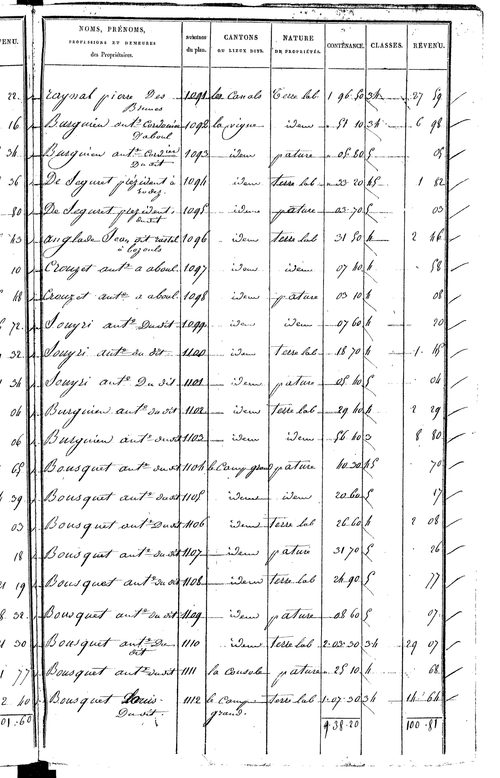 NOMS, PRÉNOMS,
PROFESSIONS ET DEMEURES
des Propriétaires.
NUMÉROS
du plan.
CANTONS
OU LIEUX DITS.
NATURE
DE PROPRIÉTÉS.
CONTENANCE.
CLASSES.
REVENU.
22 raynal pierre Des 1091 les Canals Terre lab 1 96 50 34 27 59
Brunes
16 Burguiere ant.e Cordonnier 1092 la vigne idem 51 10 34 6 98
D'aboul
34 Burguiere ant.e Cordier 1093 idem pature 05 80 5 05
Du dit
36 De Seguret président à 1094 idem terre lab 33 20 45 1 82
rodez
80 De Seguret president 1095 idem pature 03 70 5 03
du dit
43 anglade Jean dit 1096 idem terre lab 31 50 4 2 46
à bozouls
10 Crouzet ant.e a aboul 1097 idem idem 07 40 4 58
48 Crouzet ant.e a aboul 1098 idem pature 03 10 4 08
72 Souyri ant.e Du dit 1099 idem idem 07 60 4 20
32 Souyri ant.e du dit 1100 idem terre lab 18 70 4 1 45
34 Souyri ant.e Du dit 1101 idem pature 05 40 5 04
04 Burguiere ant.e du dit 1102 idem terre lab 29 60 4 2 29
06 Burguiere ant.e du dit 1103 idem idem 56 40 3 8 80
65 Bousquet ant.e du dit 1104 le Camp grand pature 40 30 45 70
39 Bousquet ant.e du dit 1105 idem idem 20 60 5 17
03 Bousquet ant.e Du dit 1106 idem terre lab 26 60 4 2 08
18 Bousquet ant.e du dit 1107 idem pature 31 70 5 26
19 Bousquet ant.e du dit 1108 idem terre lab 24 90 5 77
32 Bousquet ant.e du dit 1109 idem pature 08 60 5 07
30 Bousquet ant.e Du 1110 idem terre lab 2 03 30 34 29 07
dit
77 Bousquet ant.e du dit 1111 la Coustole pature 25 10 4 68
2 40 Bousquet Louis 1112 le Camp terre lab 1 07 30 34 14 64
Du dit. grand.
01 60 9 38 20 100 81